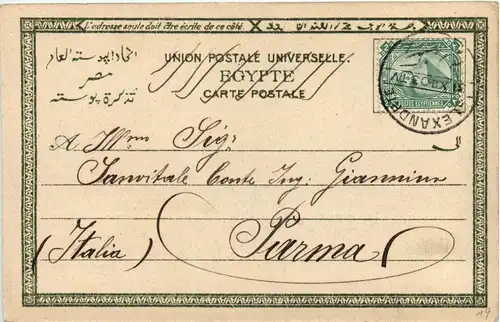 L'adresse seule doit être écrite de ce côté.
اتحاد البوسته العام
مصر
تذكرة بوسته
UNION POSTALE UNIVERSELLE.
EGYPTE
CARTE POSTALE
POSTES EGYPTIENNES
ALEXANDRIE
A Ill.mo Sig:
Sanvitale Conte Ing. Giannino
Parma
(Italia)
19